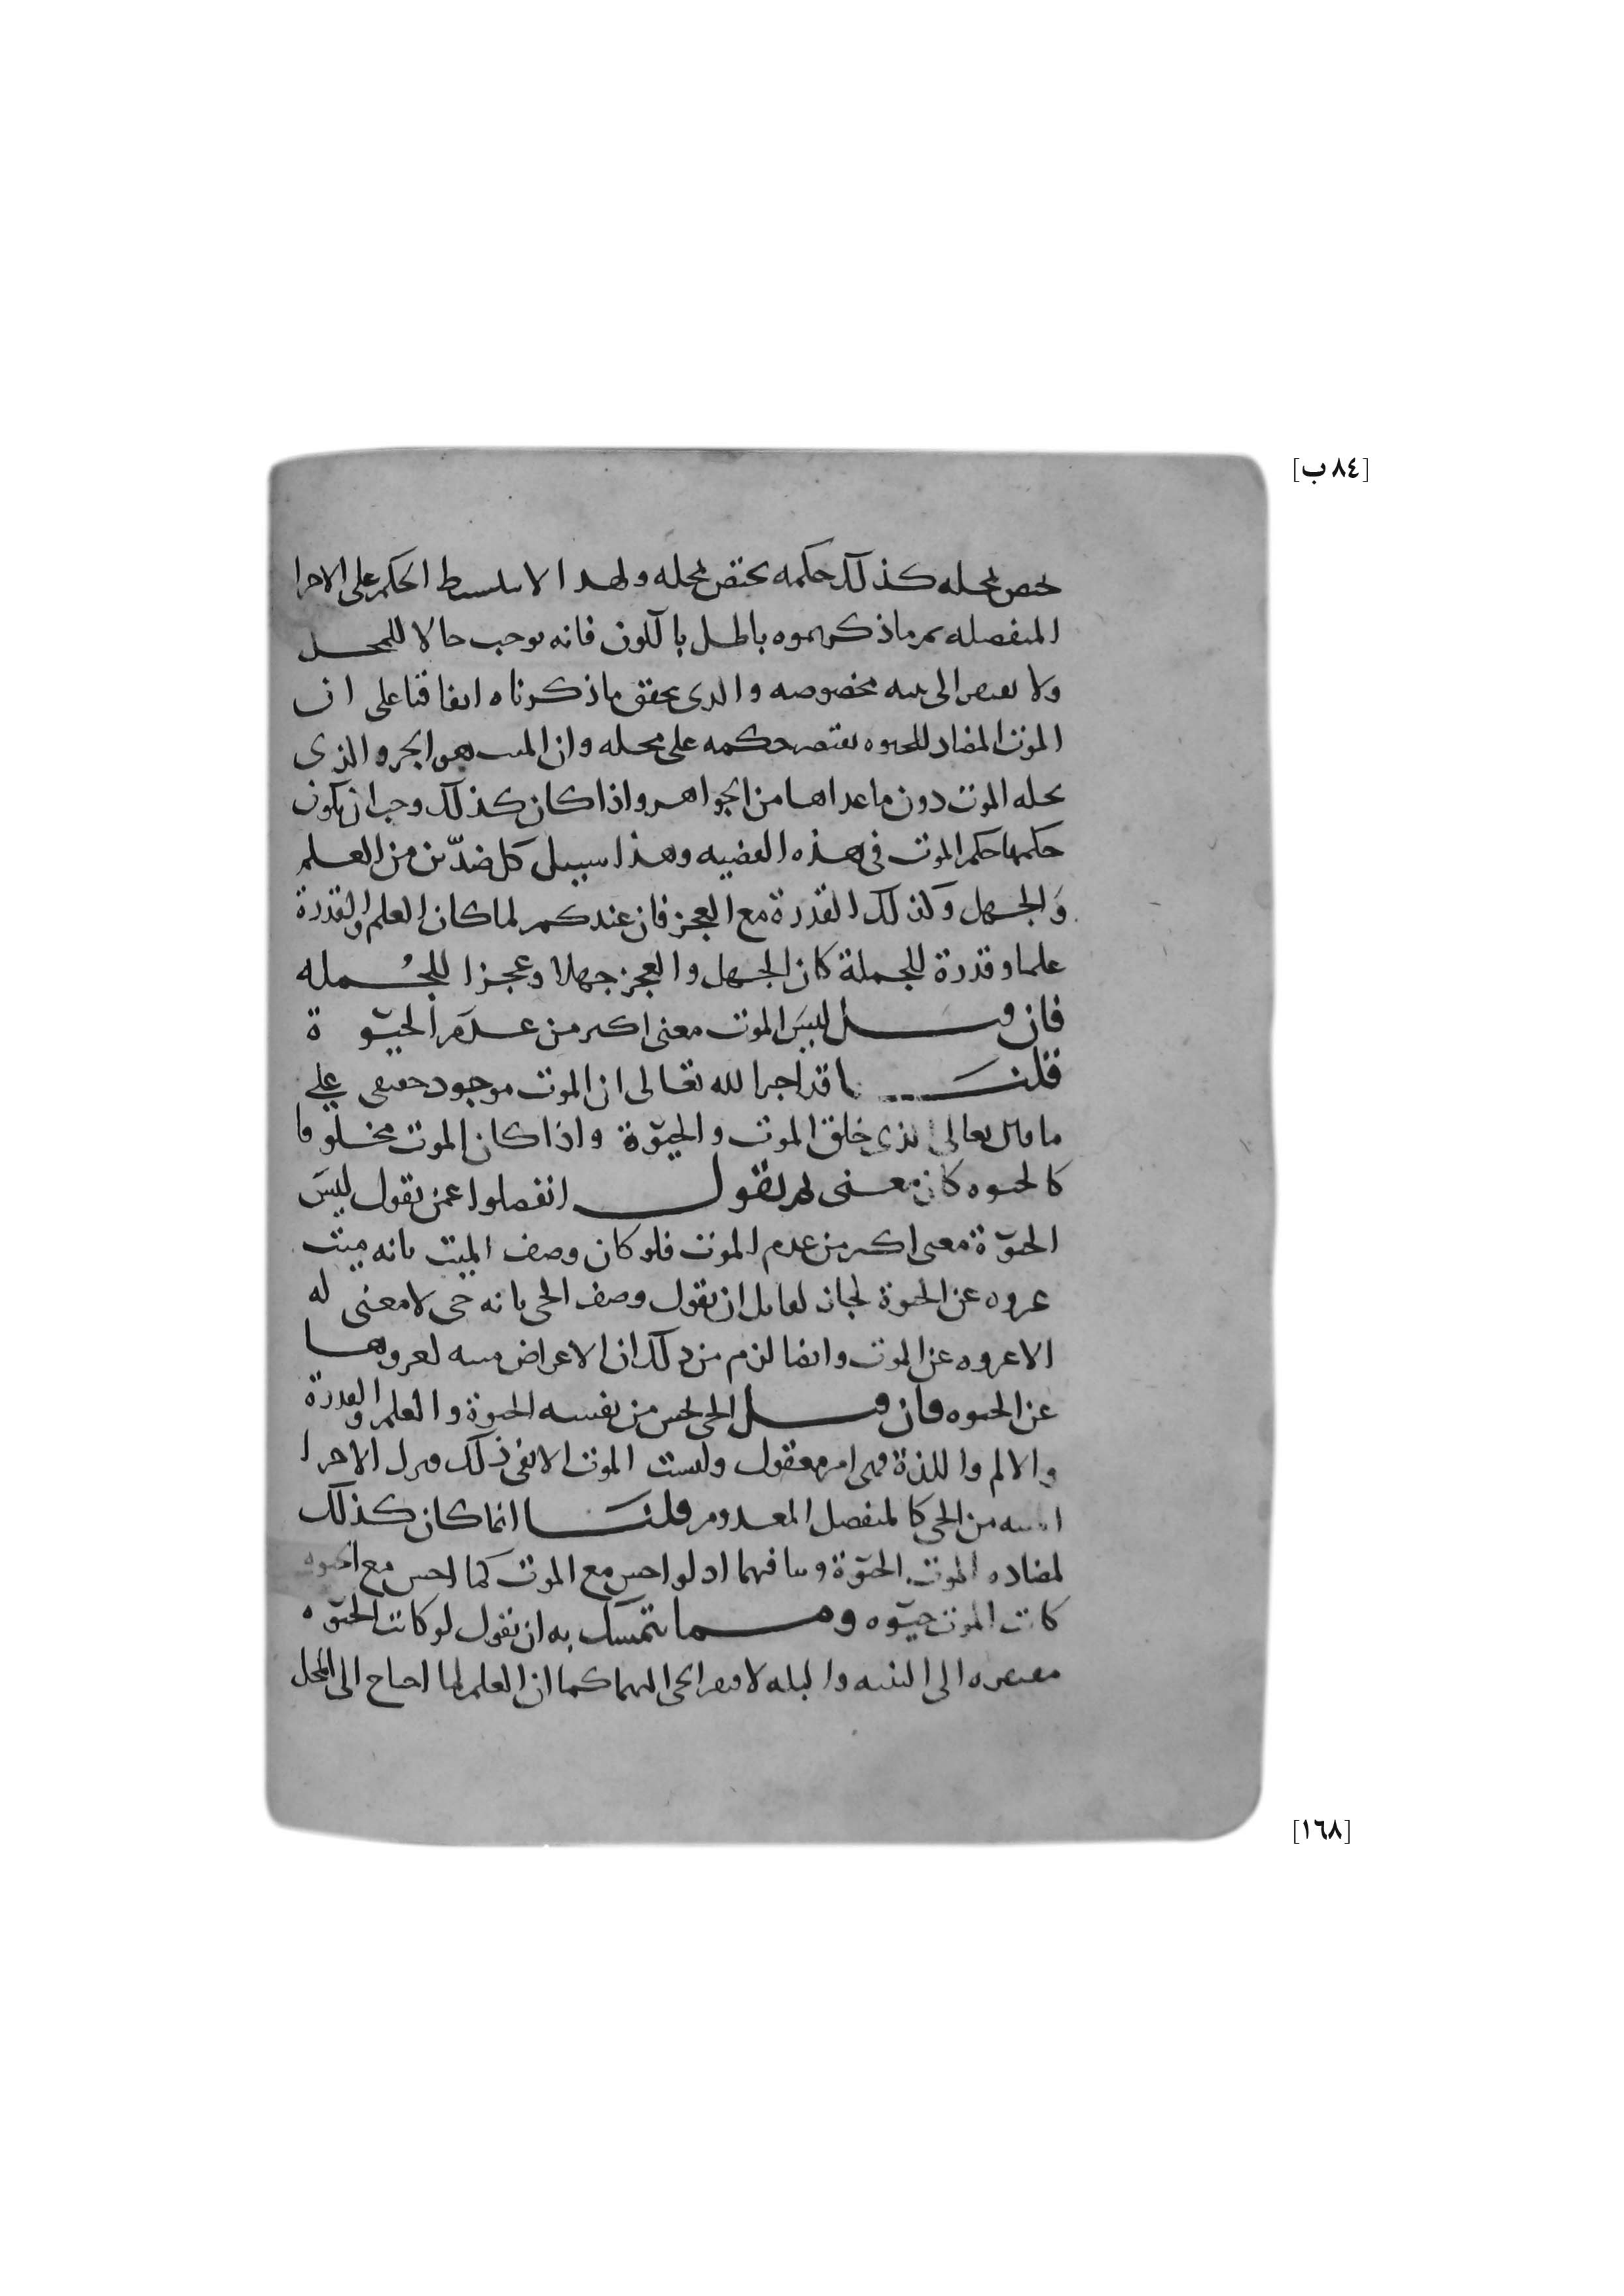 [٨٤ ب]
يختص بمحله كذلك حكمه يختص بمحله ولهذا لا ينبسط الحكم على الاجزا
المنفصله ثم ما ذكرتموه باطل بالكون فانه يوجب حالا للمحل
ولا يفتقر الى بنيه مخصوصه والذى يحقق ما ذكرناه اتفاقنا على ان
الموت المضاد للحيوه يقتصر حكمه على محله وان الميت هو الجزو الذى
يحله الموت دون ما عداها من الجواهر واذا كان كذلك وجب ان يكون
حكمها حكم الموت فى هذه القضيه وهذا سبيل كل ضدّين من العلم
والجهل وكذلك القدرة مع العجز فان عندكم لما كان العلم والقدرة
علما وقدرة للجملة كان الجهل والعجز جهلا وعجزا للجُمله
فان قيل ليسَ الموت معنى اكثر من عدَم الحيٰوة
قلنا قد أخبر الله تعالى ان الموت موجود حقيقى على
ما قال تعالى الذى خلق الموت والحيٰوة واذا كان الموت مخلوقا
كالحيوه كان معنى ثم نقول انفصلوا عمن يقول ليسَ
الحيوٰة معنى اكثر من عدم الموت فلو كان وصف الميت بانه ميت
عروه عن الحيوة لجاز لقايل ان يقول وصف الحى بانه حى لا معنى له
الا عروه عن الموت وايضا لزم من ذلك ان الاعراض ميته لعروها
عن الحيوه فان قيل الحى يحس من نفسه الحيوة والعلم والقدرة
والالم واللذة فهى امر معقول وليست الموت الا نفى ذلك فنزل الاجزا
الميته من الحى كالمنفصل المعدوم قلنا انما كان كذلك
لمضاده الموت الحيوٰة وتنافيهما اذ لو احس مع الموت كما احس مع الحيوه
كانت الموت حيوٰه ومما يتمسك به ان نقول لو كانت الحيوٰه
مفتقره الى البنيه والبله لافتقر الحى اليهما كما ان العلم لما احتاج الى المحل
[١٦٨]